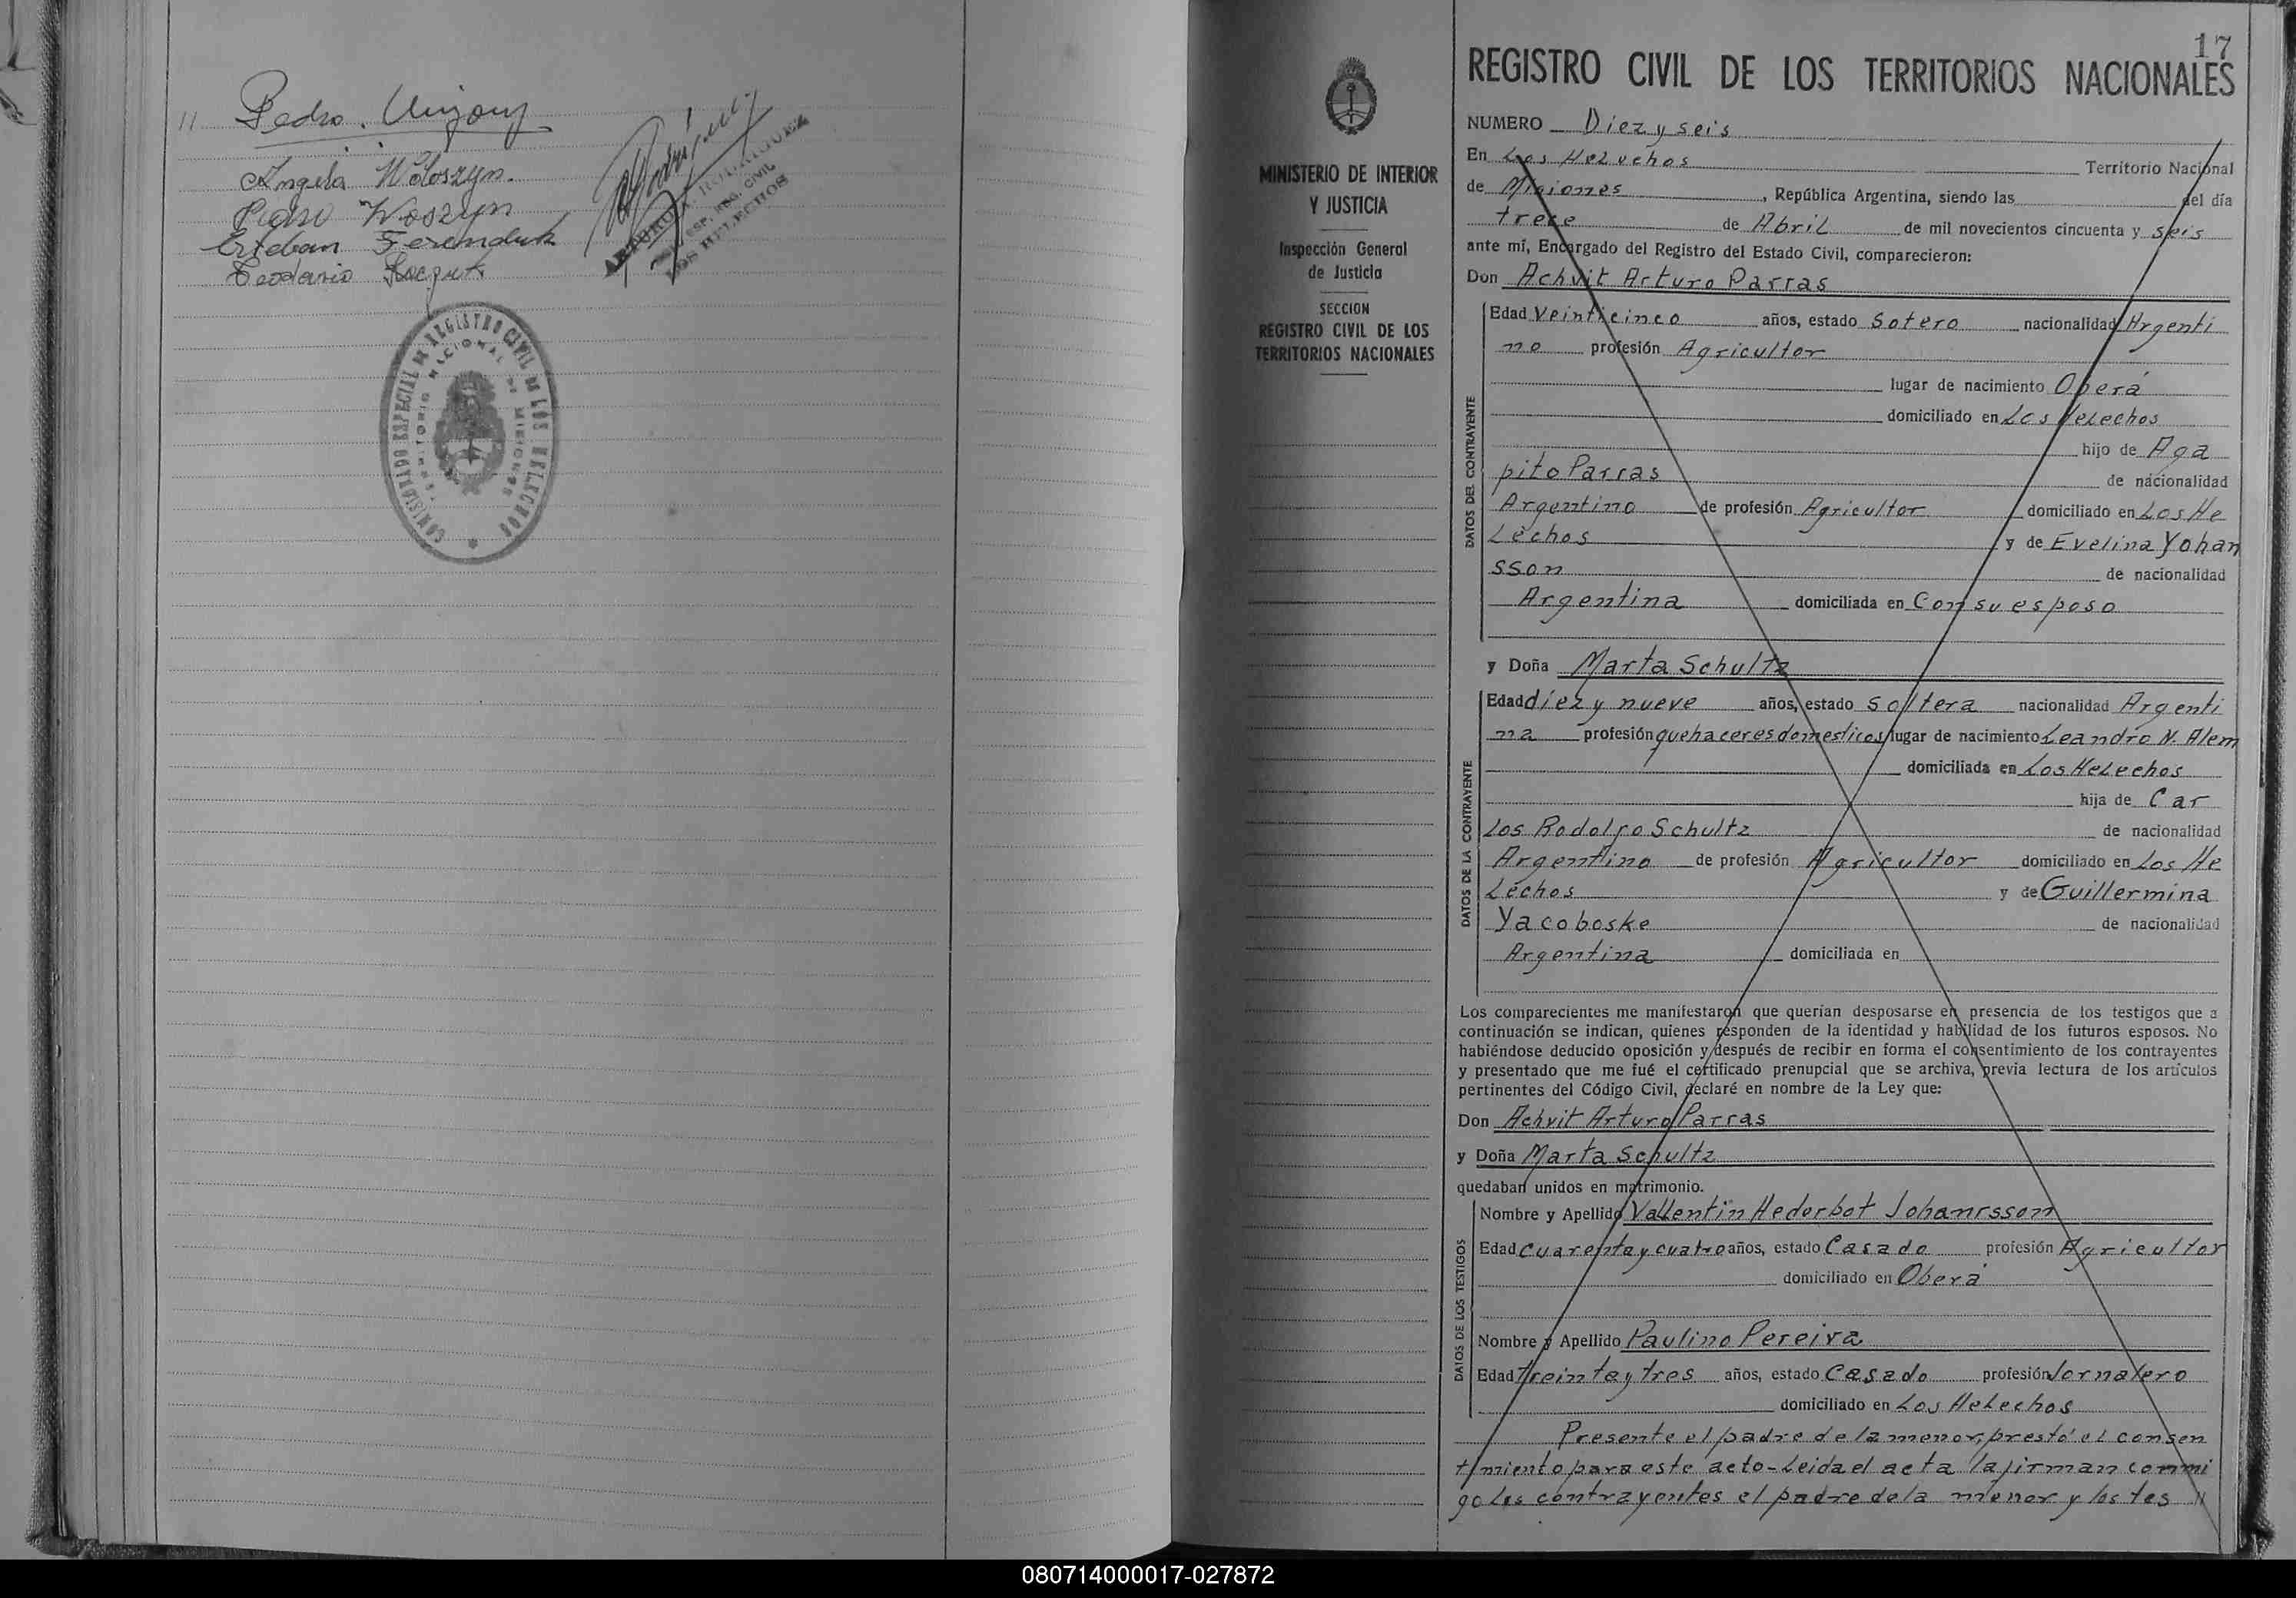 11 Pedro
Angela Woloszyn.
Pedro Woszyn
Esteban Ferenduk
REG. CIVIL
LOS HELECHOS
COMISIONADO ESPECIAL DE REGISTRO CIVIL DE LOS HELECHOS
TERRITORIO NACIONAL DE MISIONES
17
REGISTRO CIVIL DE LOS TERRITORIOS NACIONALES
MINISTERIO DE INTERIOR
Y JUSTICIA
Inspección General
de Justicia
SECCION
REGISTRO CIVIL DE LOS
TERRITORIOS NACIONALES
NUMERO Diez y seis
En Los Helechos Territorio Nacional
de Misiones, República Argentina, siendo las del día
trece de Abril de mil novecientos cincuenta y seis
ante mí, Encargado del Registro del Estado Civil, comparecieron:
Don Achvit Arturo Parras
DATOS DEL CONTRAYENTE
Edad Veinticinco años, estado Sotero nacionalidad Argenti
no profesión Agricultor
lugar de nacimiento Oberá
domiciliado en Los Helechos
hijo de Aga
pito Parras de nacionalidad
Argentino de profesión Agricultor domiciliado en Los He
Lechos y de Evelina Yohan
sson de nacionalidad
Argentina domiciliada en Con su esposo
y Doña Marta Schultz
DATOS DE LA CONTRAYENTE
Edad diez y nueve años, estado Soltera nacionalidad Argenti
na profesión quehaceres domesticos lugar de nacimiento Leandro N. Alem
domiciliada en Los Helechos
hija de Car
Los Rodolfo Schultz de nacionalidad
Argentino de profesión Agricultor domiciliado en Los He
Lechos y de Guillermina
Yacoboske de nacionalidad
Argentina domiciliada en
Los comparecientes me manifestaron que querían desposarse en presencia de los testigos que a
continuación se indican, quienes responden de la identidad y habilidad de los futuros esposos. No
habiéndose deducido oposición y después de recibir en forma el consentimiento de los contrayentes
y presentado que me fué el certificado prenupcial que se archiva, previa lectura de los artículos
pertinentes del Código Civil, declaré en nombre de la Ley que:
Don Achvit Arturo Parras
y Doña Marta Schultz
quedaban unidos en matrimonio.
DATOS DE LOS TESTIGOS
Nombre y Apellido Vallentin Hederbot Johansson
Edad Cuarenta y cuatro años, estado Casado profesión Agricultor
domiciliado en Oberá
Nombre y Apellido Paulino Pereira
Edad Treinta y tres años, estado Casado profesión Jornalero
domiciliado en Los Helechos
Presente el padre de la menor, prestó el consen
timiento para este acto-Leida el acta la firman conmi
go los contrayentes el padre de la menor y los tes //
080714000017-027872